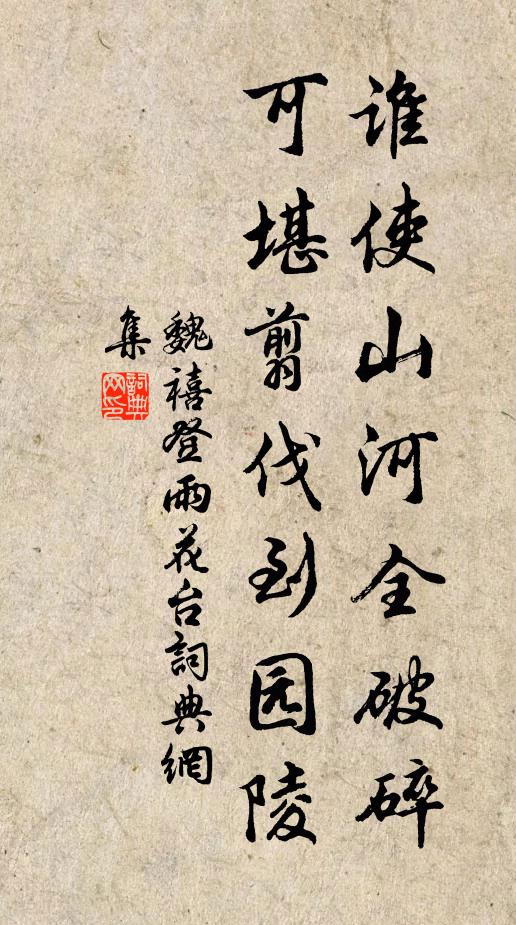 谁使山河全破碎
可堪剪伐到园陵
魏禧登雨花台詞典網
集
詞典网印